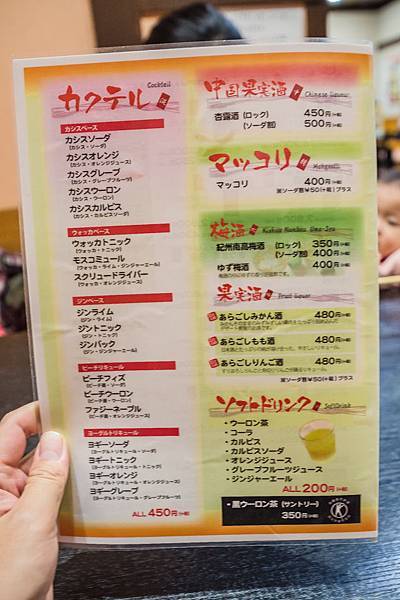 カクテル
Cocktail
カシスベース
カシスソーダ
(カシス・ソーダ)
カシスオレンジ
(カシス・オレンジジュース)
カシスグレープ
(カシス・グレープフルーツ)
カシスウーロン
(カシス・ウーロン)
カシスカルピス
(カシス・カルピスソーダ)
ウォッカベース
ウォッカトニック
(ウォッカ・トニック)
モスコミュール
(ウォッカ・ライム・ジンジャーエール)
スクリュードライバー
(ウォッカ・オレンジジュース)
ジンベース
ジンライム
(ジン・ライム)
ジントニック
(ジン・トニック)
ジンバック
(ジン・ジンジャーエール)
ピーチリキュール
ピーチフィズ
(ピーチ・ソーダ)
ピーチウーロン
(ピーチ・ウーロン)
ファジーネーブル
(ピーチ・オレンジジュース)
ヨーグルトリキュール
ヨギーソーダ
(ヨーグルトリキュール・ソーダ)
ヨギートニック
(ヨーグルトリキュール・トニック)
ヨギーオレンジ
(ヨーグルトリキュール・オレンジジュース)
ヨギーグレープ
(ヨーグルトリキュール・グレープフルーツ)
ALL 450円(+税)
中国果実酒
Chinese liquour
杏露酒 (ロック) 450円(+税)
(ソーダ割) 500円(+税)
マッコリ
Makgeolli
マッコリ 400円(+税)
※ソーダ割¥50(+税)プラス
梅酒
Kishuu Nankou Ume-Shu
紀州南高梅酒 (ロック) 350円(+税)
(ソーダ割) 400円(+税)
ゆず梅酒 400円(+税)
果実酒
Fruit liquor
あらごしみかん酒 480円(+税)
あらごしもも酒 480円(+税)
あらごしりんご酒 480円(+税)
※ソーダ割¥50(+税)プラス
ソフトドリンク
SoftDrink
・ウーロン茶
・コーラ
・カルピス
・カルピスソーダ
・オレンジジュース
・グレープフルーツジュース
・ジンジャーエール
ALL 200円(+税)
・黒ウーロン茶 (サントリー)
350円(+税)